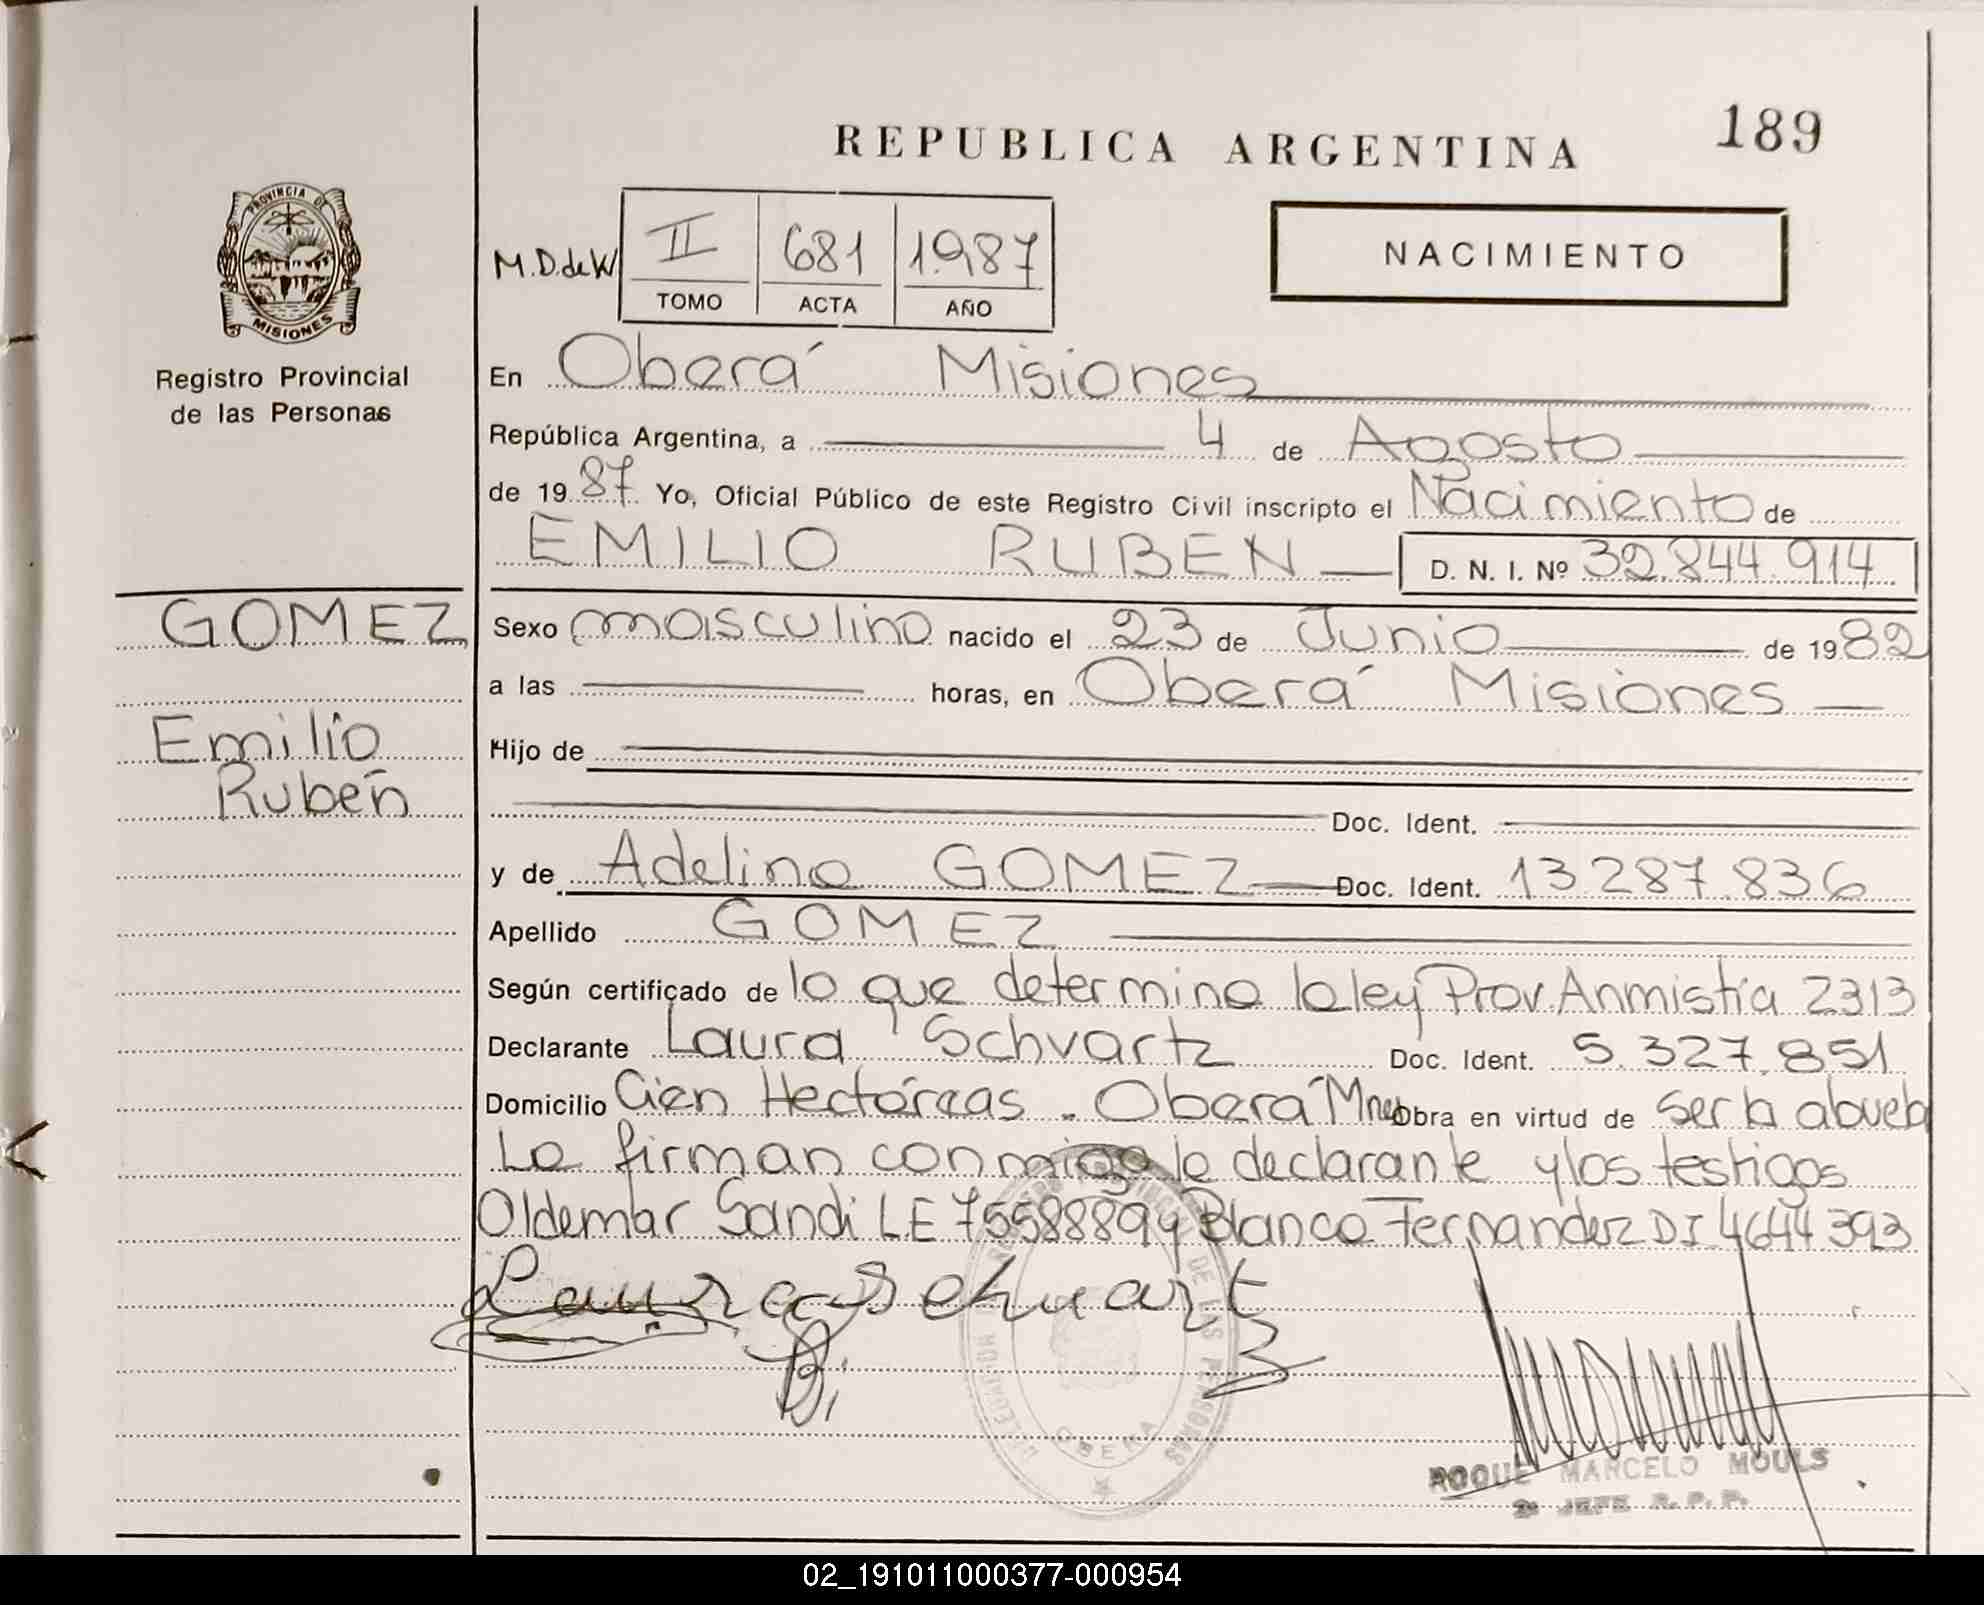 189
REPUBLICA ARGENTINA
PROVINCIA DE
MISIONES
Registro Provincial
de las Personas
M.D.de W
II 681 1.987
TOMO ACTA AÑO
NACIMIENTO
En Oberá Misiones
República Argentina, a 4 de Agosto
de 1987 Yo, Oficial Público de este Registro Civil inscripto el Nacimiento de
EMILIO RUBEN D. N. I. Nº 32.844.914
GOMEZ
Emilio
Rubén
Sexo masculino nacido el 23 de Junio de 1982
a las horas, en Oberá Misiones
Hijo de
Doc. Ident.
y de Adelina GOMEZ Doc. Ident. 13.287.836
Apellido GOMEZ
Según certificado de lo que determina la ley Prov. Anmistía 2313
Declarante Laura Schvartz Doc. Ident. 5.327.851
Domicilio Cien Hectáreas - Oberá Mnes Obra en virtud de ser la abuela
La firman conmigo la declarante y los testigos
Oldemar Sandi L.E 7558889 y Blanca Fernandez D I 4644393
Laura Schuartz
DELEGACION REGISTRO PROVINCIAL DE LAS PERSONAS
OBERA
ROQUE MARCELO MOULS
2º JEFE R. P. P.
02_191011000377-000954